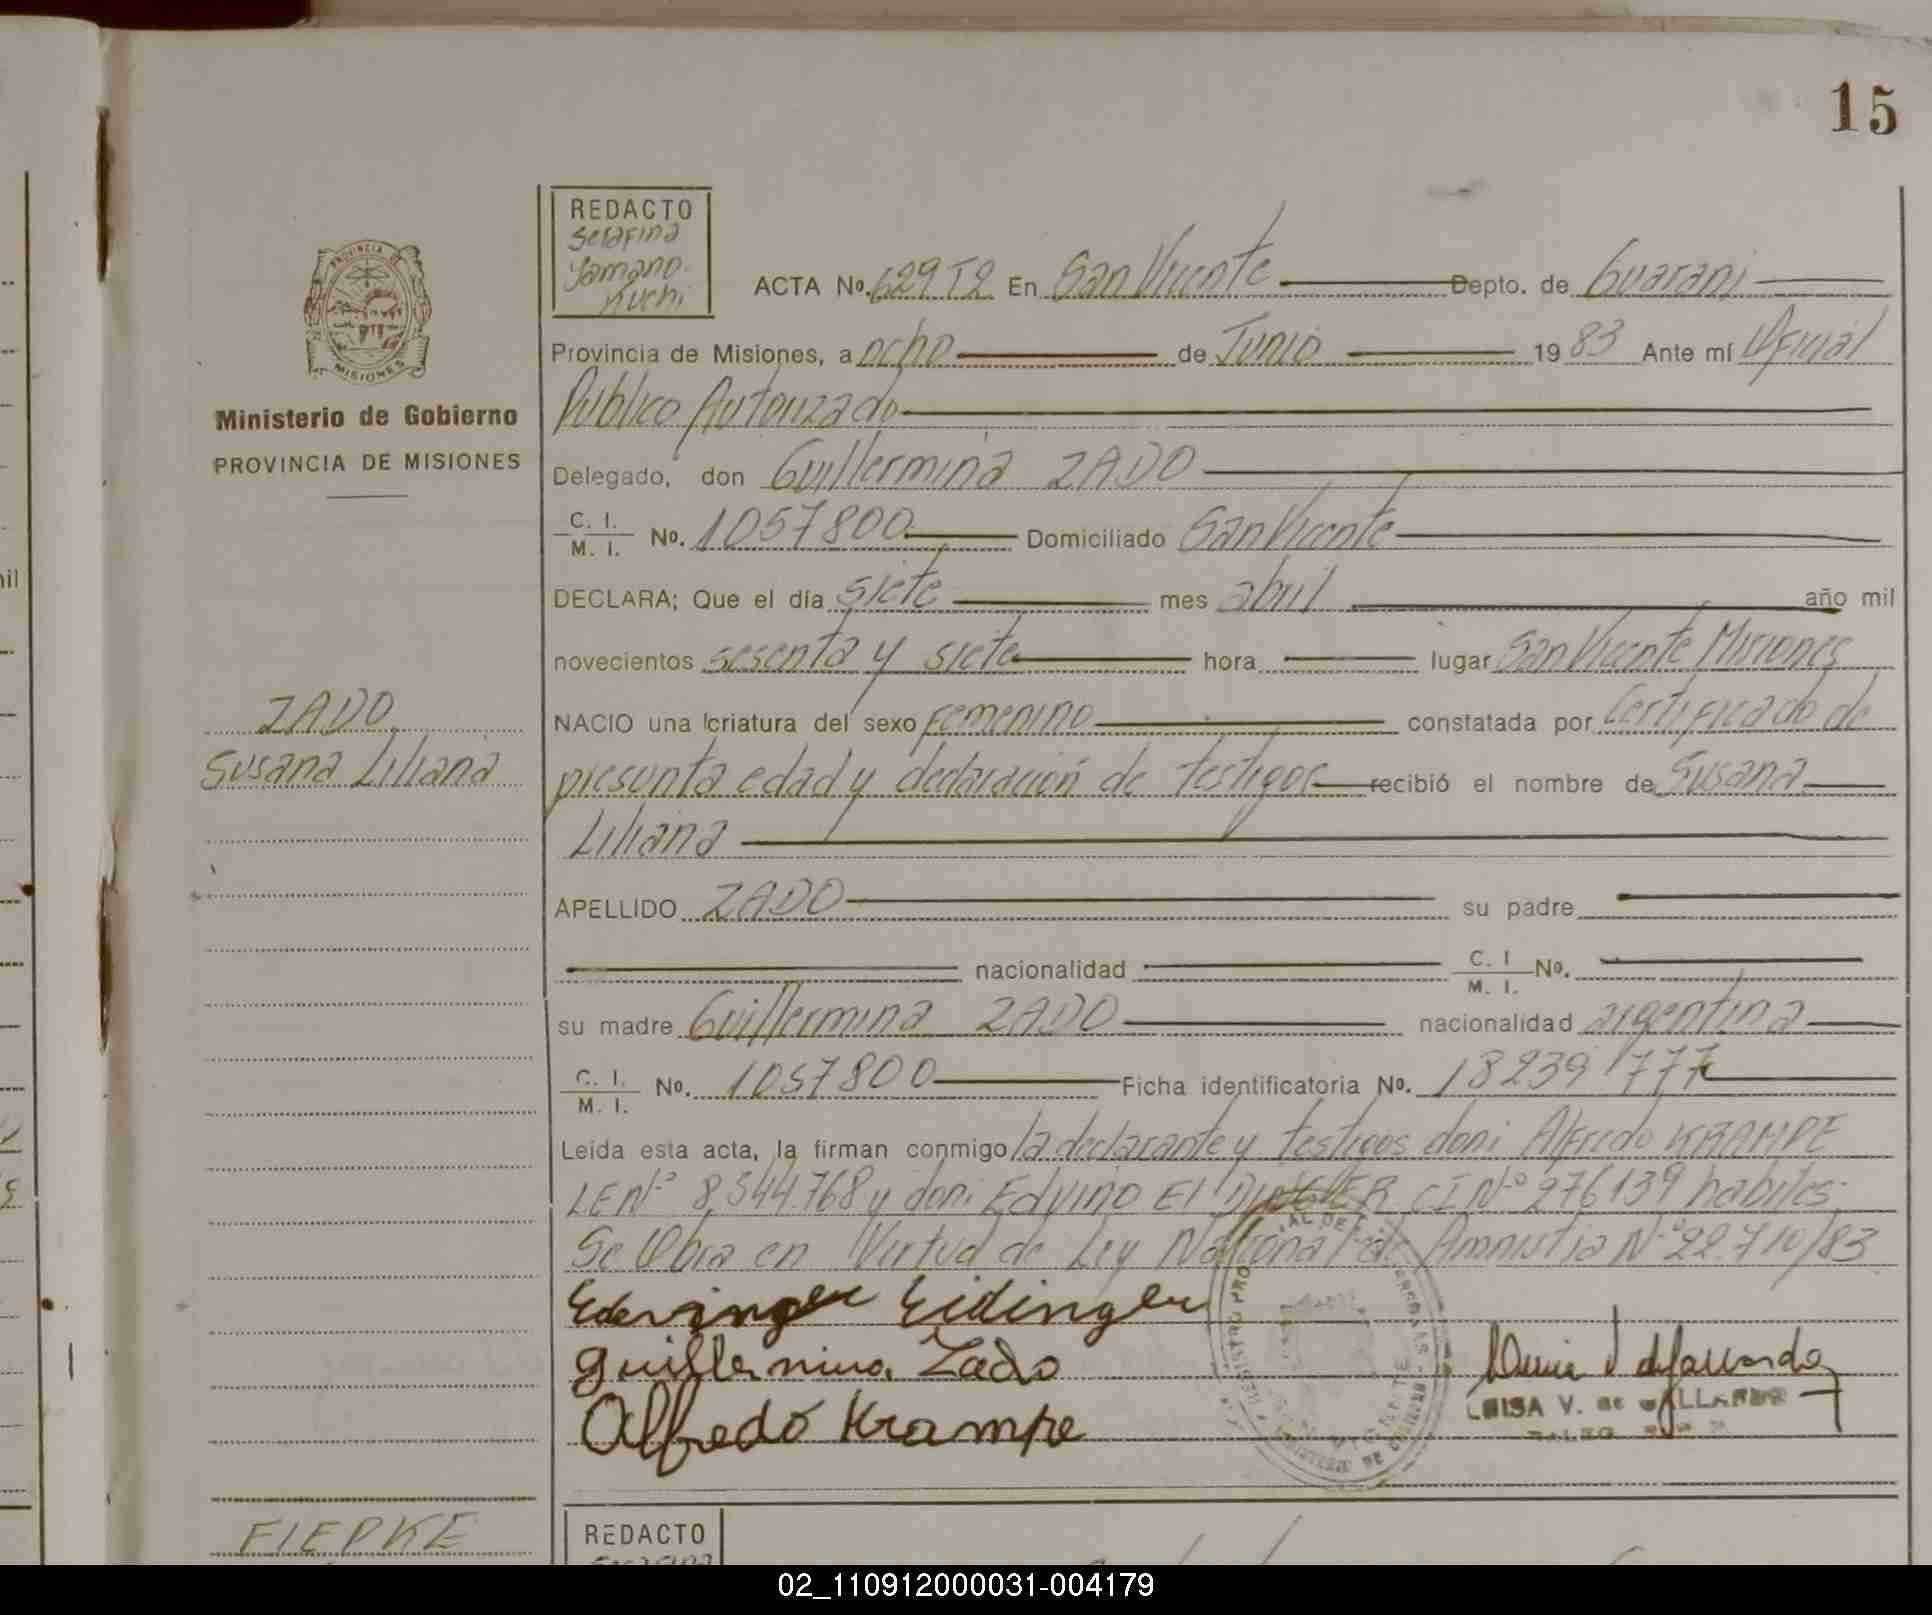 15
REDACTO
Serafina
Yamano
Kuchi
ACTA No. 629 T2 En San Vicente Depto. de Guarani
Provincia de Misiones, a ocho de Junio 19 83 Ante mí Oficial
Publico Autorizado
PROVINCIA DE
MISIONES
Ministerio de Gobierno
PROVINCIA DE MISIONES
Delegado, don Guillermina ZADO
C. I.
M. I. No. 1057800 Domiciliado San Vicente
DECLARA; Que el día siete mes abril año mil
novecientos sesenta y siete hora lugar San Vicente Misiones
ZADO
Susana Liliana
NACIO una criatura del sexo Femenino constatada por Certificado de
presunta edad y declaración de testigos recibió el nombre de Susana
Liliana
APELLIDO ZADO su padre
nacionalidad C. I
M. I. No.
su madre Guillermina ZADO nacionalidad argentina
C. I.
M. I. No. 1057800 Ficha identificatoria No. 18239777
Leída esta acta, la firman conmigo la declarante y testigos don: Alfredo KRAMPE
LE Nº 8.544.768 y don: Edvino EIDINGER CI Nº 276139 habiles.
Se Obra en Virtud de Ley Nacional de Amnistia Nº 22.710/83
Eidinger
Guillermina Zado
Alfredo Krampe
LUISA V. de GALLARDO
FIEPKE
REDACTO
02_110912000031-004179